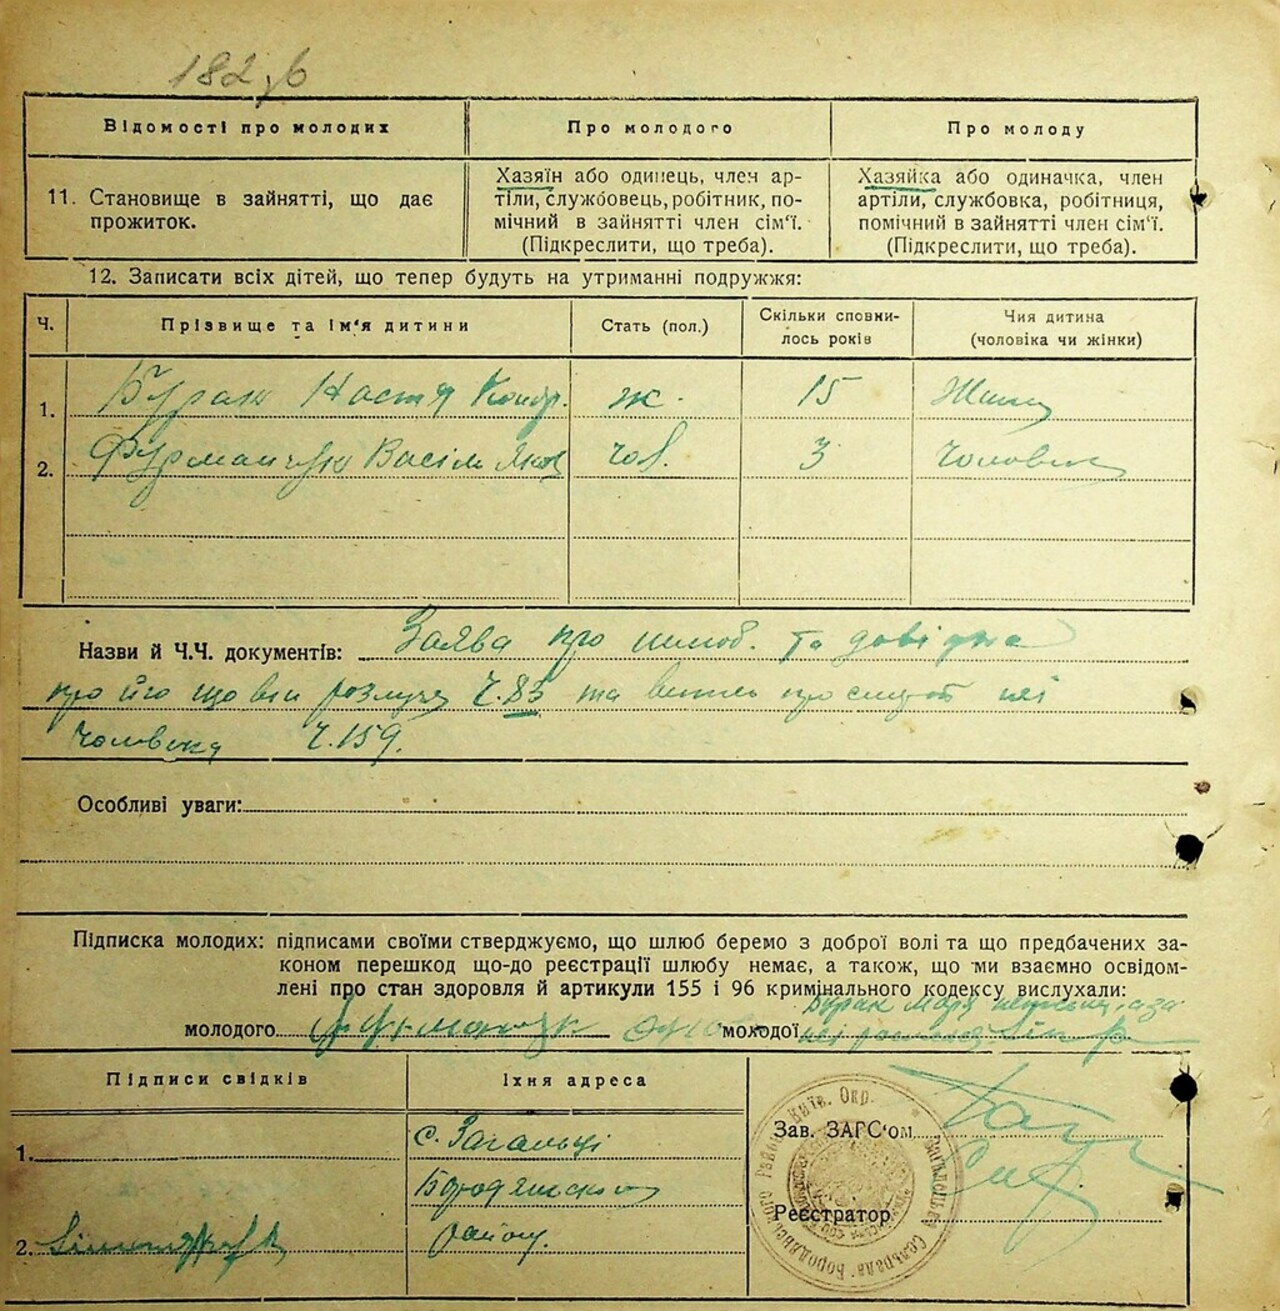 182
Відомості про молодих
Про молодого
Про молоду
11. Становище в зайнятті, що дає
прожиток.
Хазяїн або одинець, член ар-
тіли, службовець, робітник, по-
мічний в зайнятті член сім'ї.
(Підкреслити, що треба).
Хазяйка або одиначка, член
артіли, службовка, робітниця,
помічний в зайнятті член сім'ї.
(Підкреслити, що треба).
12. Записати всіх дітей, що тепер будуть на утриманні подружжя:
Ч.
Прізвище та ім'я дитини
Стать (пол.)
Скільки сповни-
лось років
Чия дитина
(чоловіка чи жінки)
1. Бурак Настя Кондр. ж. 15 Жінки
2. Фурманчук Василь Яков чол. 3 Чоловіка
Назви й Ч.Ч. документів: Заява про шлюб. та довідка
про його що він розлуч Ч. 83 та про смерть її
чоловіка Ч. 159.
Особливі уваги:
Підписка молодих: підписами своїми стверджуємо, що шлюб беремо з доброї волі та що предбачених за-
коном перешкод що-до реєстрації шлюбу немає, а також, що ми взаємно освідом-
лені про стан здоровля й артикули 155 і 96 кримінального кодексу вислухали:
Бурак неписьм, а за
молодого Фурманчук молодої неї
Підписи свідків
Їхня адреса
1. с. Загальці
Бородянського
2. району.
Зав. ЗАГС'ом
Реєстратор
Сельрада Бородянського Району Київ. Окр.